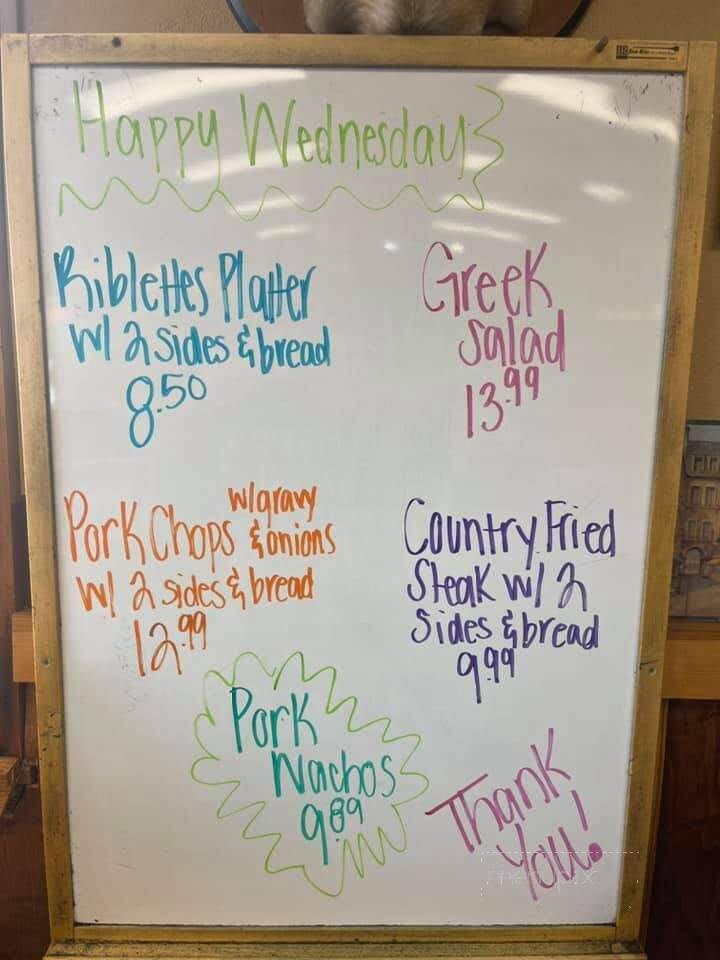 Happy Wednesday
Riblettes Platter
w/ 2 sides & bread
8.50
Greek
Salad
13.99
Pork Chops w/gravy
& onions
w/ 2 sides & bread
12.99
Country Fried
Steak w/ 2
sides & bread
9.99
Pork
Nachos
9.89
Thank
You!